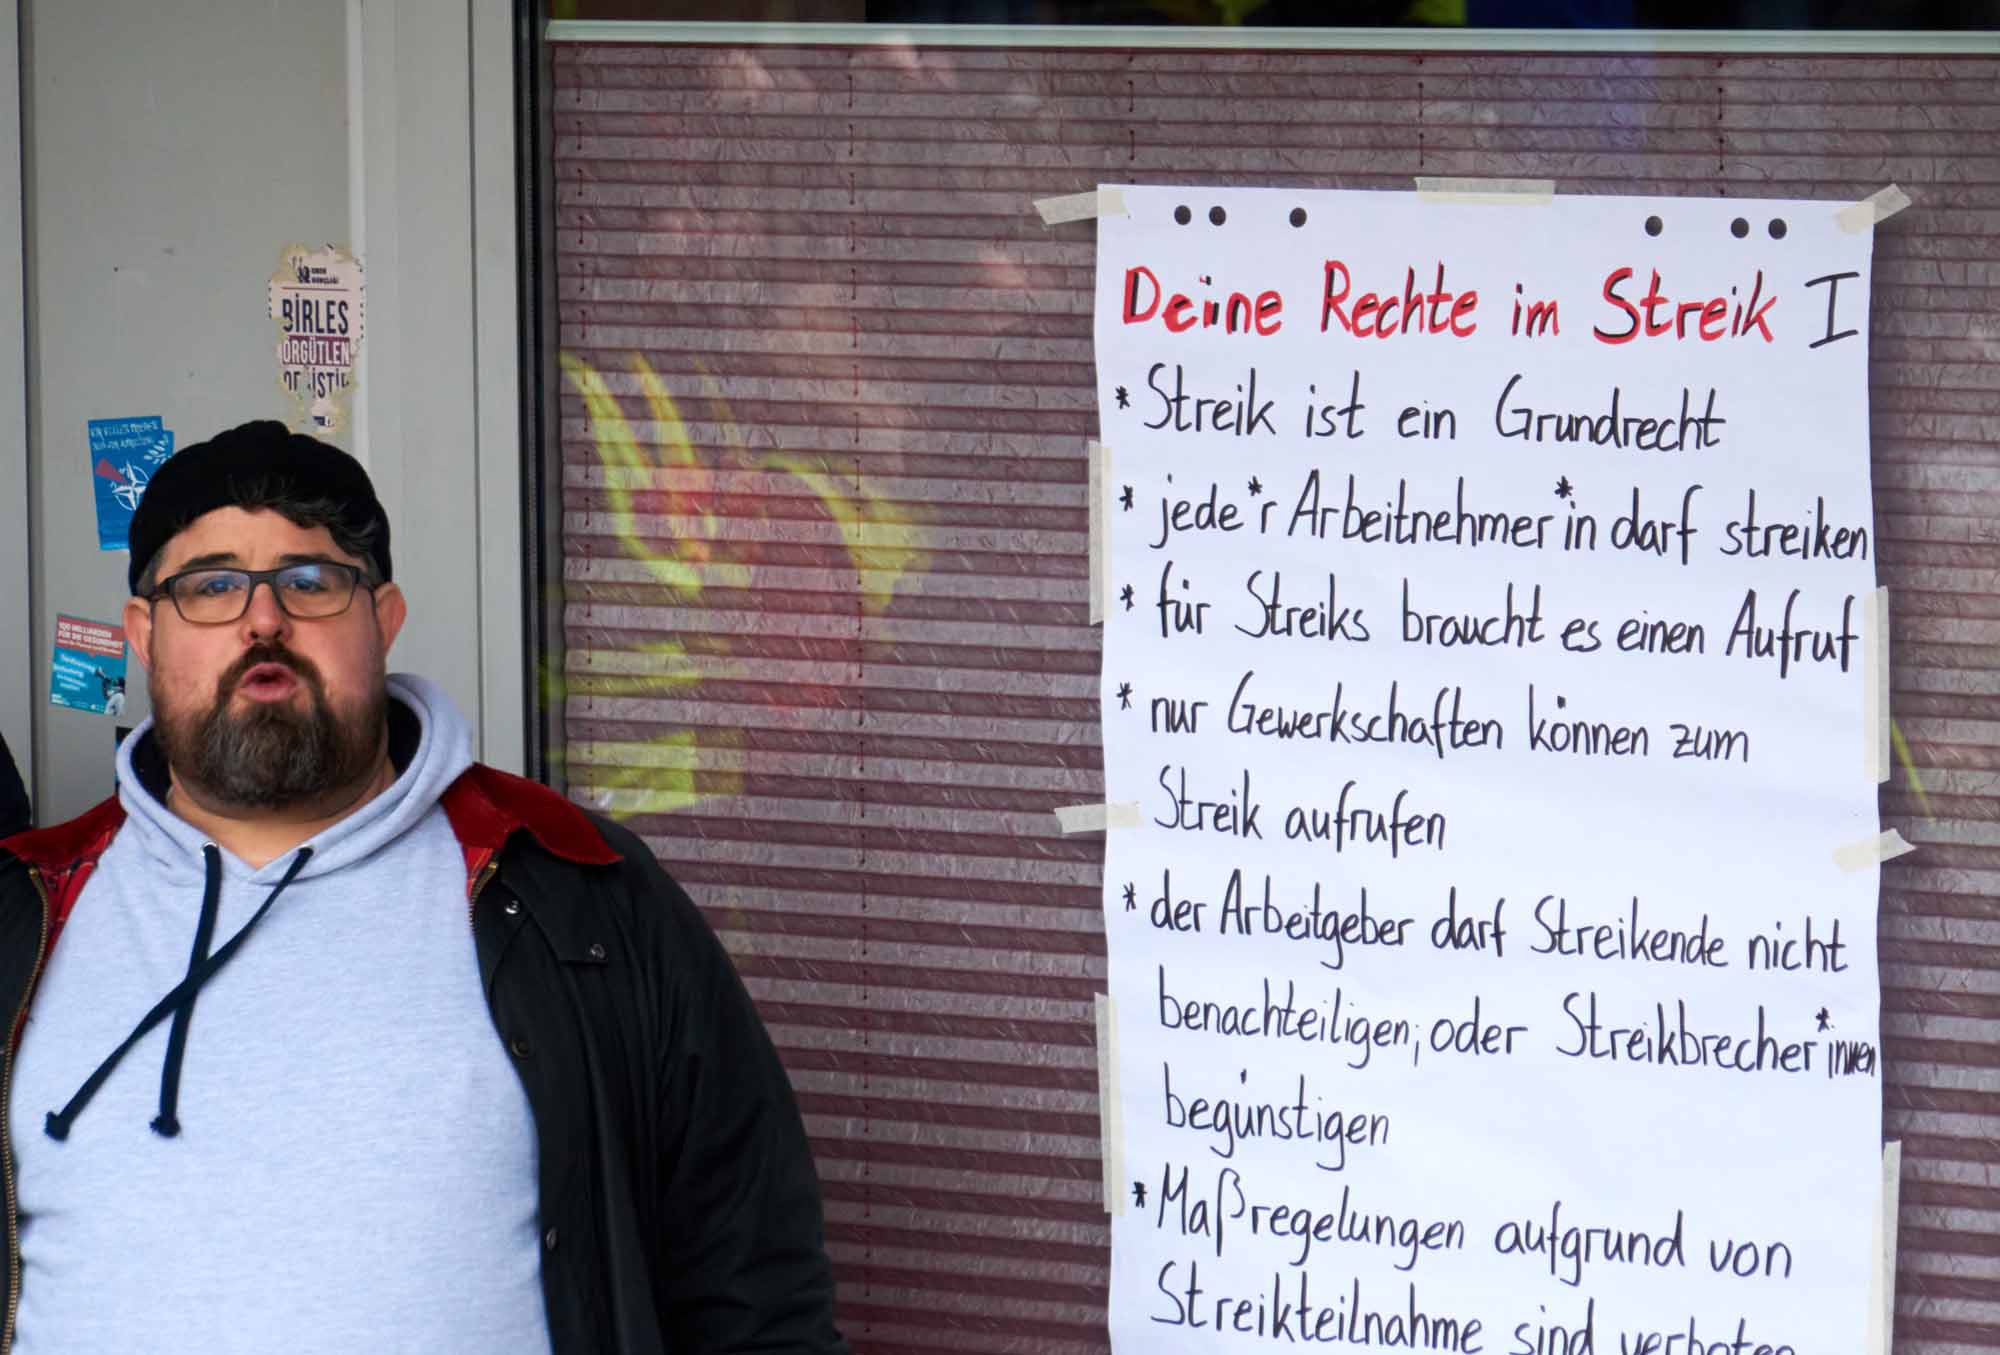 BİRLES
ÖRGÜTLEN
100 MILLIARDEN
FÜR DIE GESUNDHEIT
Deine Rechte im Streik I
* Streik ist ein Grundrecht
* jede*r Arbeitnehmer*in darf streiken
* für Streiks braucht es einen Aufruf
* nur Gewerkschaften können zum
Streik aufrufen
* der Arbeitgeber darf Streikende nicht
benachteiligen, oder Streikbrecher*innen
begünstigen
* Maßregelungen aufgrund von
Streikteilnahme sind verboten